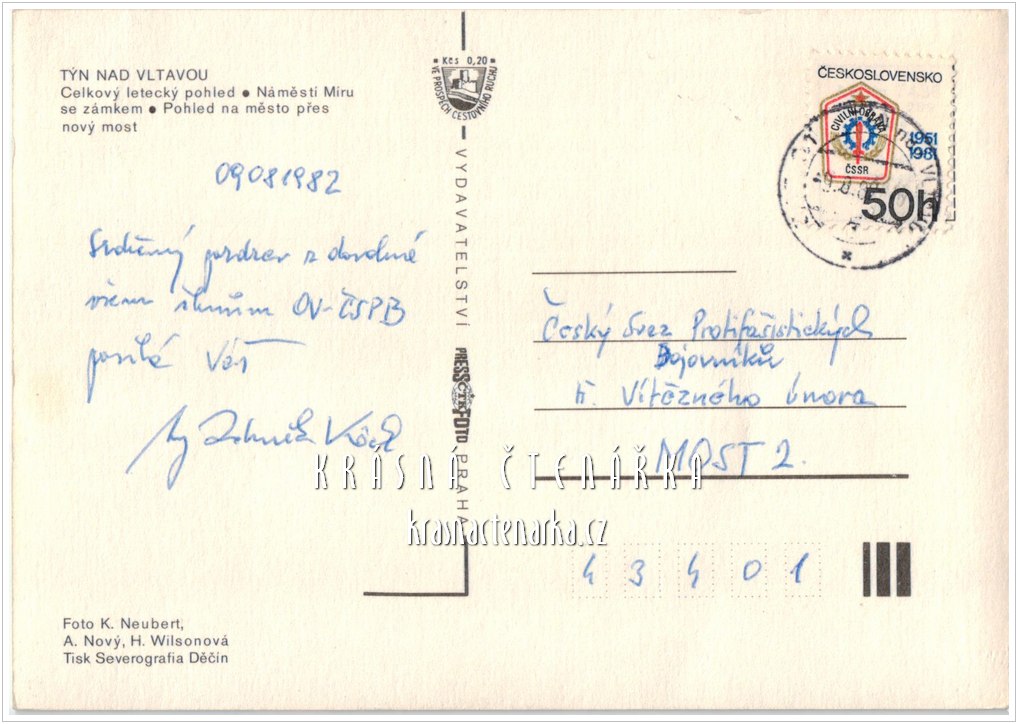 TÝN NAD VLTAVOU
Celkový letecký pohled ● Náměstí Míru
se zámkem ● Pohled na město přes
nový most
Kčs 0,20
VE PROSPĚCH CESTOVNÍHO RUCHU
ČESKOSLOVENSKO
CIVILNÍ OBRANA
1951
1981
ČSSR
50h
09081982
Srdečný pozdrav z dovolené
všem členům OV-ČSPB
posílá Váš
Zdeněk
VYDAVATELSTVÍ PRESSFOTO PRAHA
ČTK
Český Svaz Protifašistických
Bojovníků
tř. Vítězného února
MOST 2.
KRÁSNÁ ČTENÁŘKA
krasnactenarka.cz
43401
Foto K. Neubert,
A. Nový, H. Wilsonová
Tisk Severografia Děčín